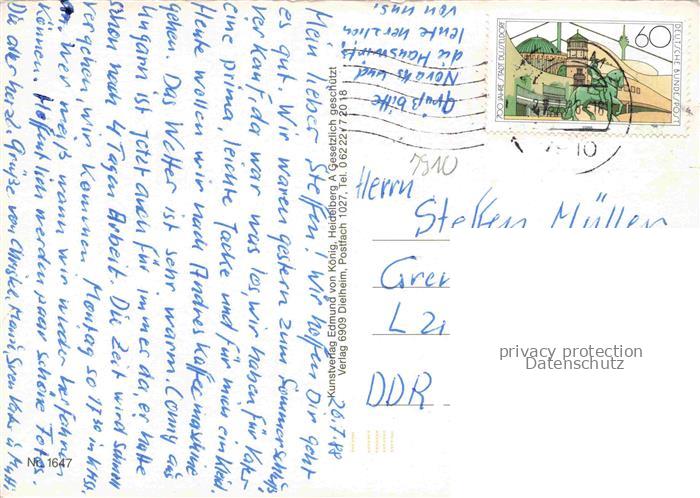 26.7.88
Mein lieber Steffen! Wir hoffen Dir geht
es gut. Wir waren gestern zum Sommerschluß
verkauf, da war was los, wir haben für Vater
eine prima, leichte Jacke und für mich ein Kleid.
Heute wollen wir nach Andres Kaffeemaschine
gehen. Das Wetter ist sehr warm. Conny aus
Ungarn ist jetzt auch für immer da, er hatte
schon nach 4 Tagen Arbeit. Die Zeit wird schnell
vergehen, wir kommen Montag so 17 30 in
wer weiß wann wir wieder herfahren
können. Hoffentlich werden paar schöne Fotos.
Die aller herzl. Grüße von Mario, Sven Vater u. Mutti
Grüß bitte
Novaks und
die Hauswirts
leute herzlich
von uns.
Kunstverlag Edmund von König, Heidelberg A Gesetzlich geschützt
Verlag 6909 Dielheim, Postfach 1027, Tel. 0 62 22 / 7 20 18
Nr. 1647
700 JAHRE STADT DÜSSELDORF
60
DEUTSCHE BUNDESPOST
7910
7910
Herrn
Steffen Müller
DDR
privacy protection
Datenschutz